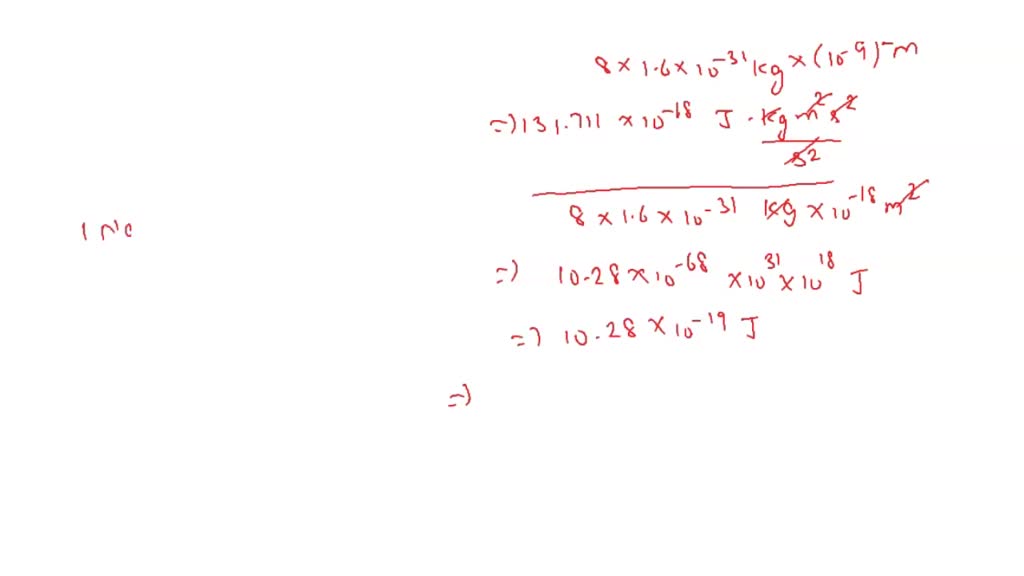 8 × 1.6 × 10⁻³¹ kg × (10⁻⁹)⁻m
=) 131.711 × 10⁻¹⁸ J · kg m² s²
s²
8 × 1.6 × 10⁻³¹ kg × 10⁻¹⁸ m²
=) 10.28 × 10⁻⁶⁸ × 10³¹ × 10¹⁸ J
=) 10.28 × 10⁻¹⁹ J
=)